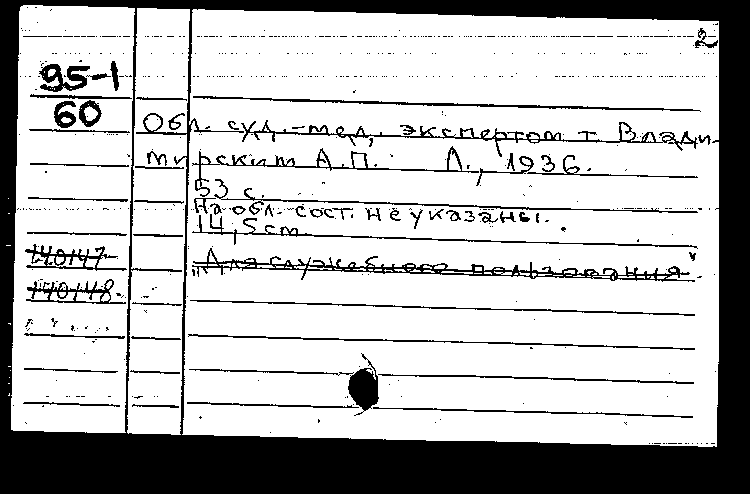 2
95-1
60
Обл. суд.-мед. экспертом т. Влади-
мирским А.П. Л., 1936.
53 с.
На обл. сост. не указаны.
14,5 cm
140147
„Для служебного пользования“.
140148.